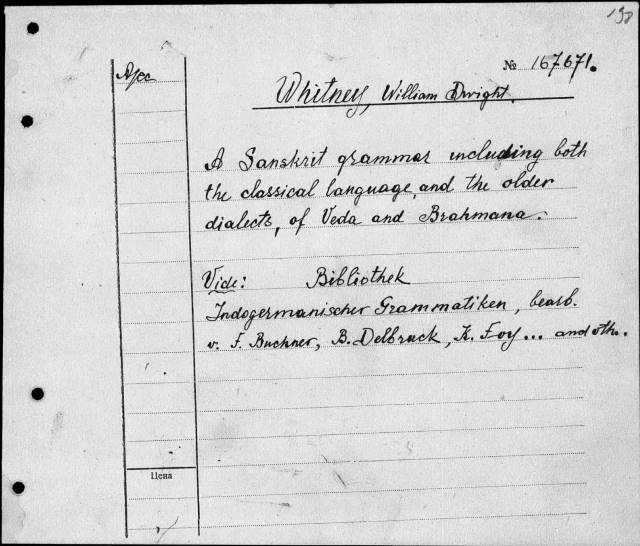 198
№ 167671.
Whitney, William Dwight.
A Sanskrit grammar including both
the classical language, and the older
dialects, of Veda and Brahmana.
Vide: Bibliothek
Indogermanischer Grammatiken, bearb.
v. F. Buchner, B. Delbruck, K. Foy ... and oth.
Цена